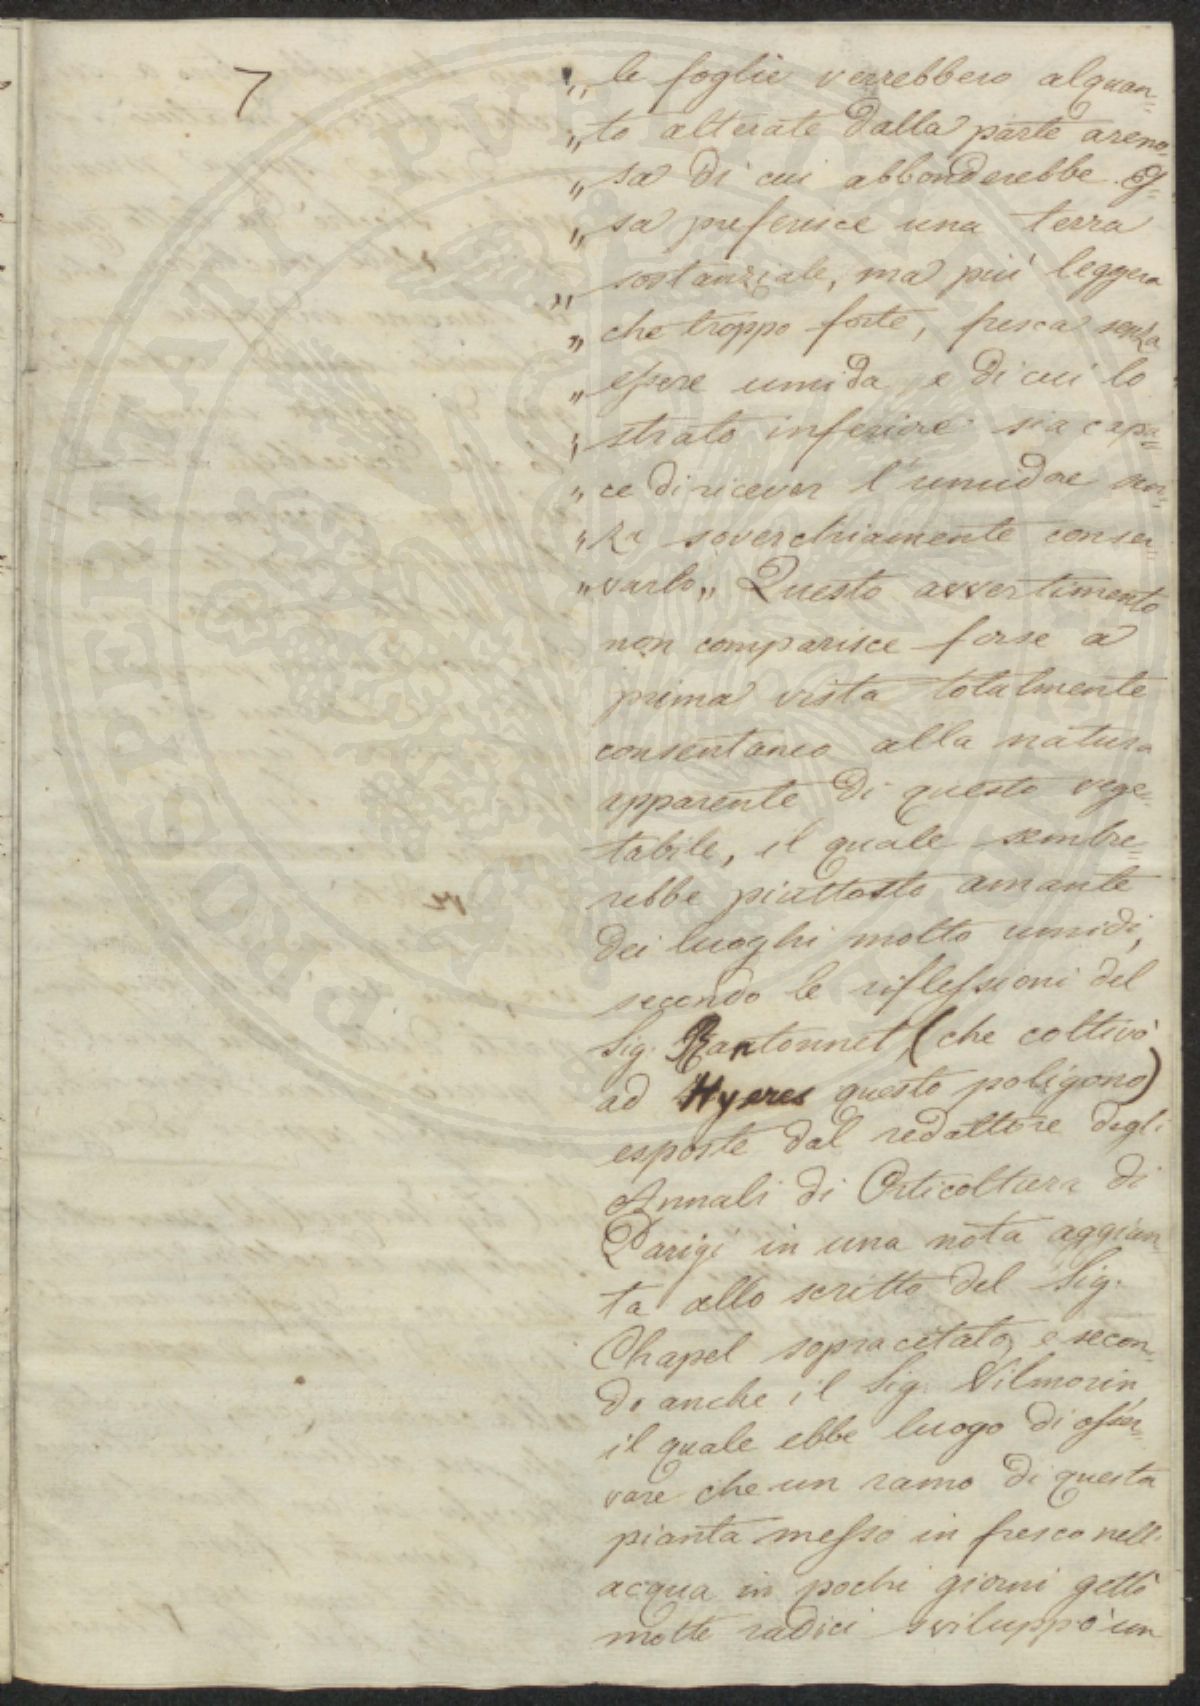 7
„ le foglie verrebbero alquan=
„ to alterate dalla parte areno=
„ sa di cui abbonderebbe. Es=
„ sa preferisce una terra
„ sostanziale, ma più leggera
„ che troppo forte, fresca senza
„ essere umida, e di cui lo
„ strato inferiore sia capa=
„ ce di ricever l'umidore sen=
„ za soverchiamente conser=
„ varlo„ Questo avvertimento
non comparisce forse a
prima vista totalmente
consentaneo alla natura
apparente di questo vege=
tabile, il quale sembre=
rebbe piuttosto amante
dei luoghi molto umidi,
secondo le riflessioni del
Sig. Rantonnet, (che coltivò
ad Hyeres questo poligono)
esposte dal redattore degli
Annali di Orticoltura di
Parigi in una nota aggiun=
ta allo scritto del Sig.
Chapel sopracitato, e secon=
do anche il Sig. Vilmorin,
il quale ebbe luogo di osser=
vare che un ramo di questa
pianta messo in fresco nell'
acqua in pochi giorni gettò
molte radici sviluppò un
PROSPERITATI PVBLICAE